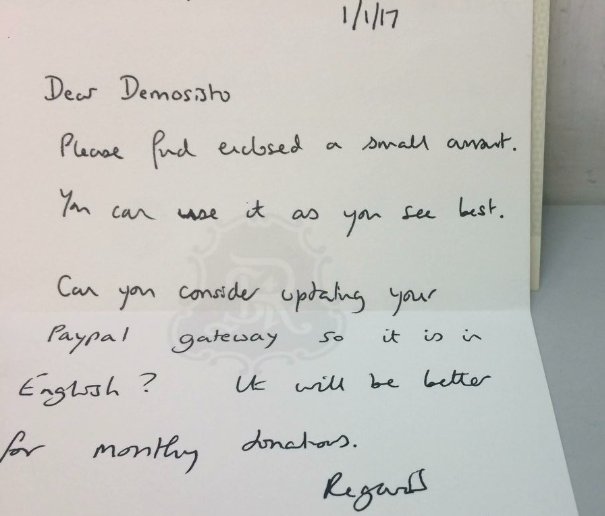 1/1/17
Dear Demosisto
Please find enclosed a small amount.
You can use it as you see best.
Can you consider updating your
Paypal gateway so it is in
English? It will be better
for monthly donations.
Regards